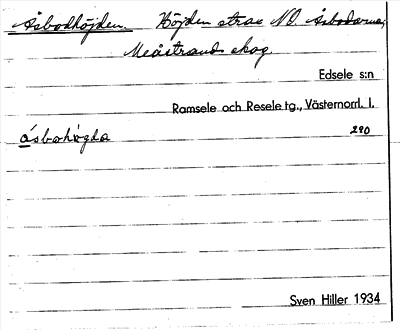 Åsbodhöjden. Höjden strax NO. Åsbodarna,
Meåstrands skog.
Edsele s:n
Ramsele och Resele tg., Västernorrl. l.
290
Sven Hiller 1934